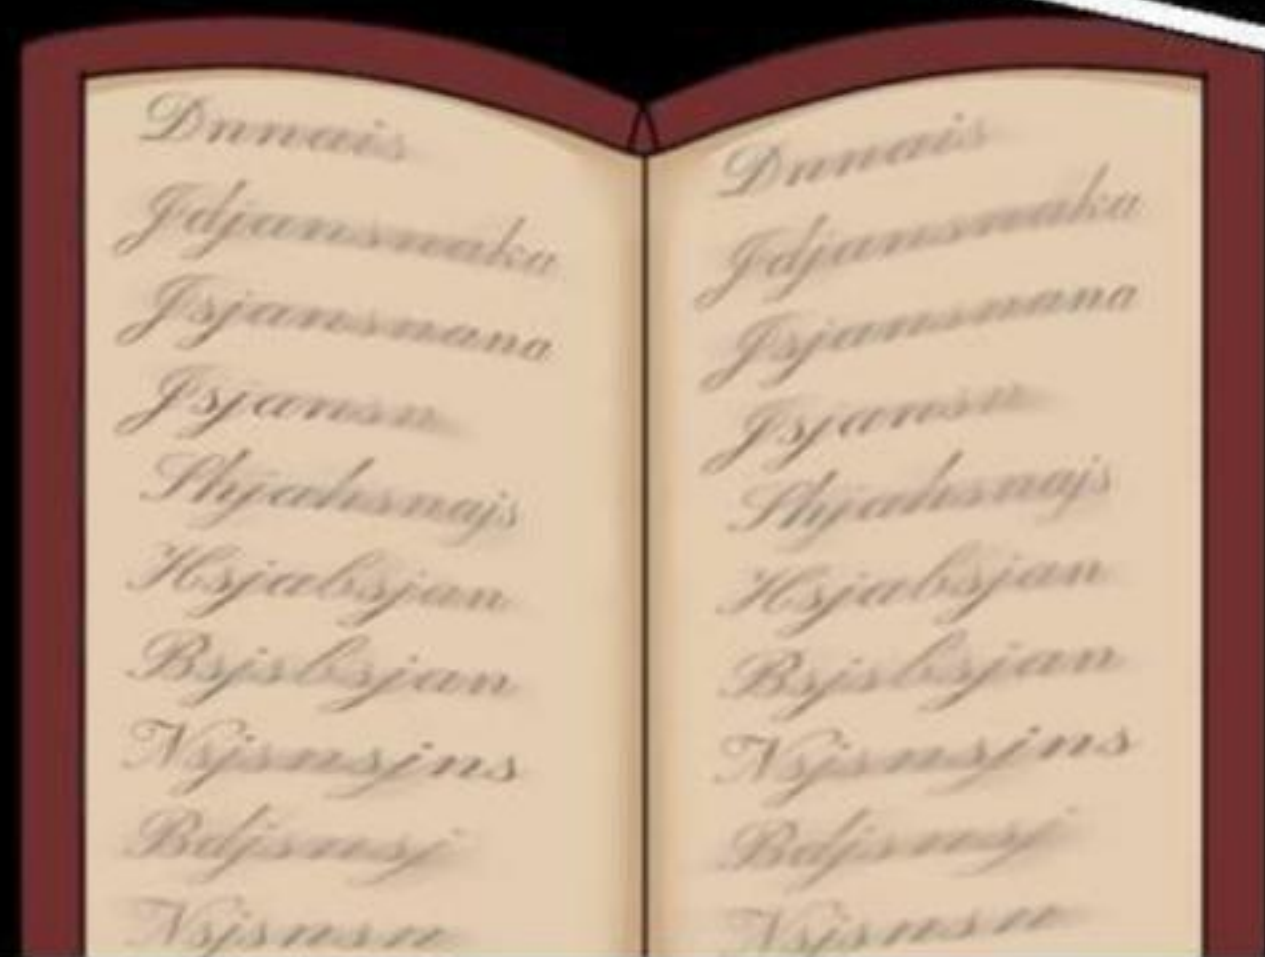 Dnnais
Jdjansmaka
Jsjansnana
Jsjansn
Shjahsnajs
Hsjabsjan
Bsjsbsjan
Nsjsnsjns
Bdjsnsj
Nsjsnsn
Dnnais
Jdjansmaka
Jsjansnana
Jsjansn
Shjahsnajs
Hsjabsjan
Bsjsbsjan
Nsjsnsjns
Bdjsnsj
Nsjsnsn